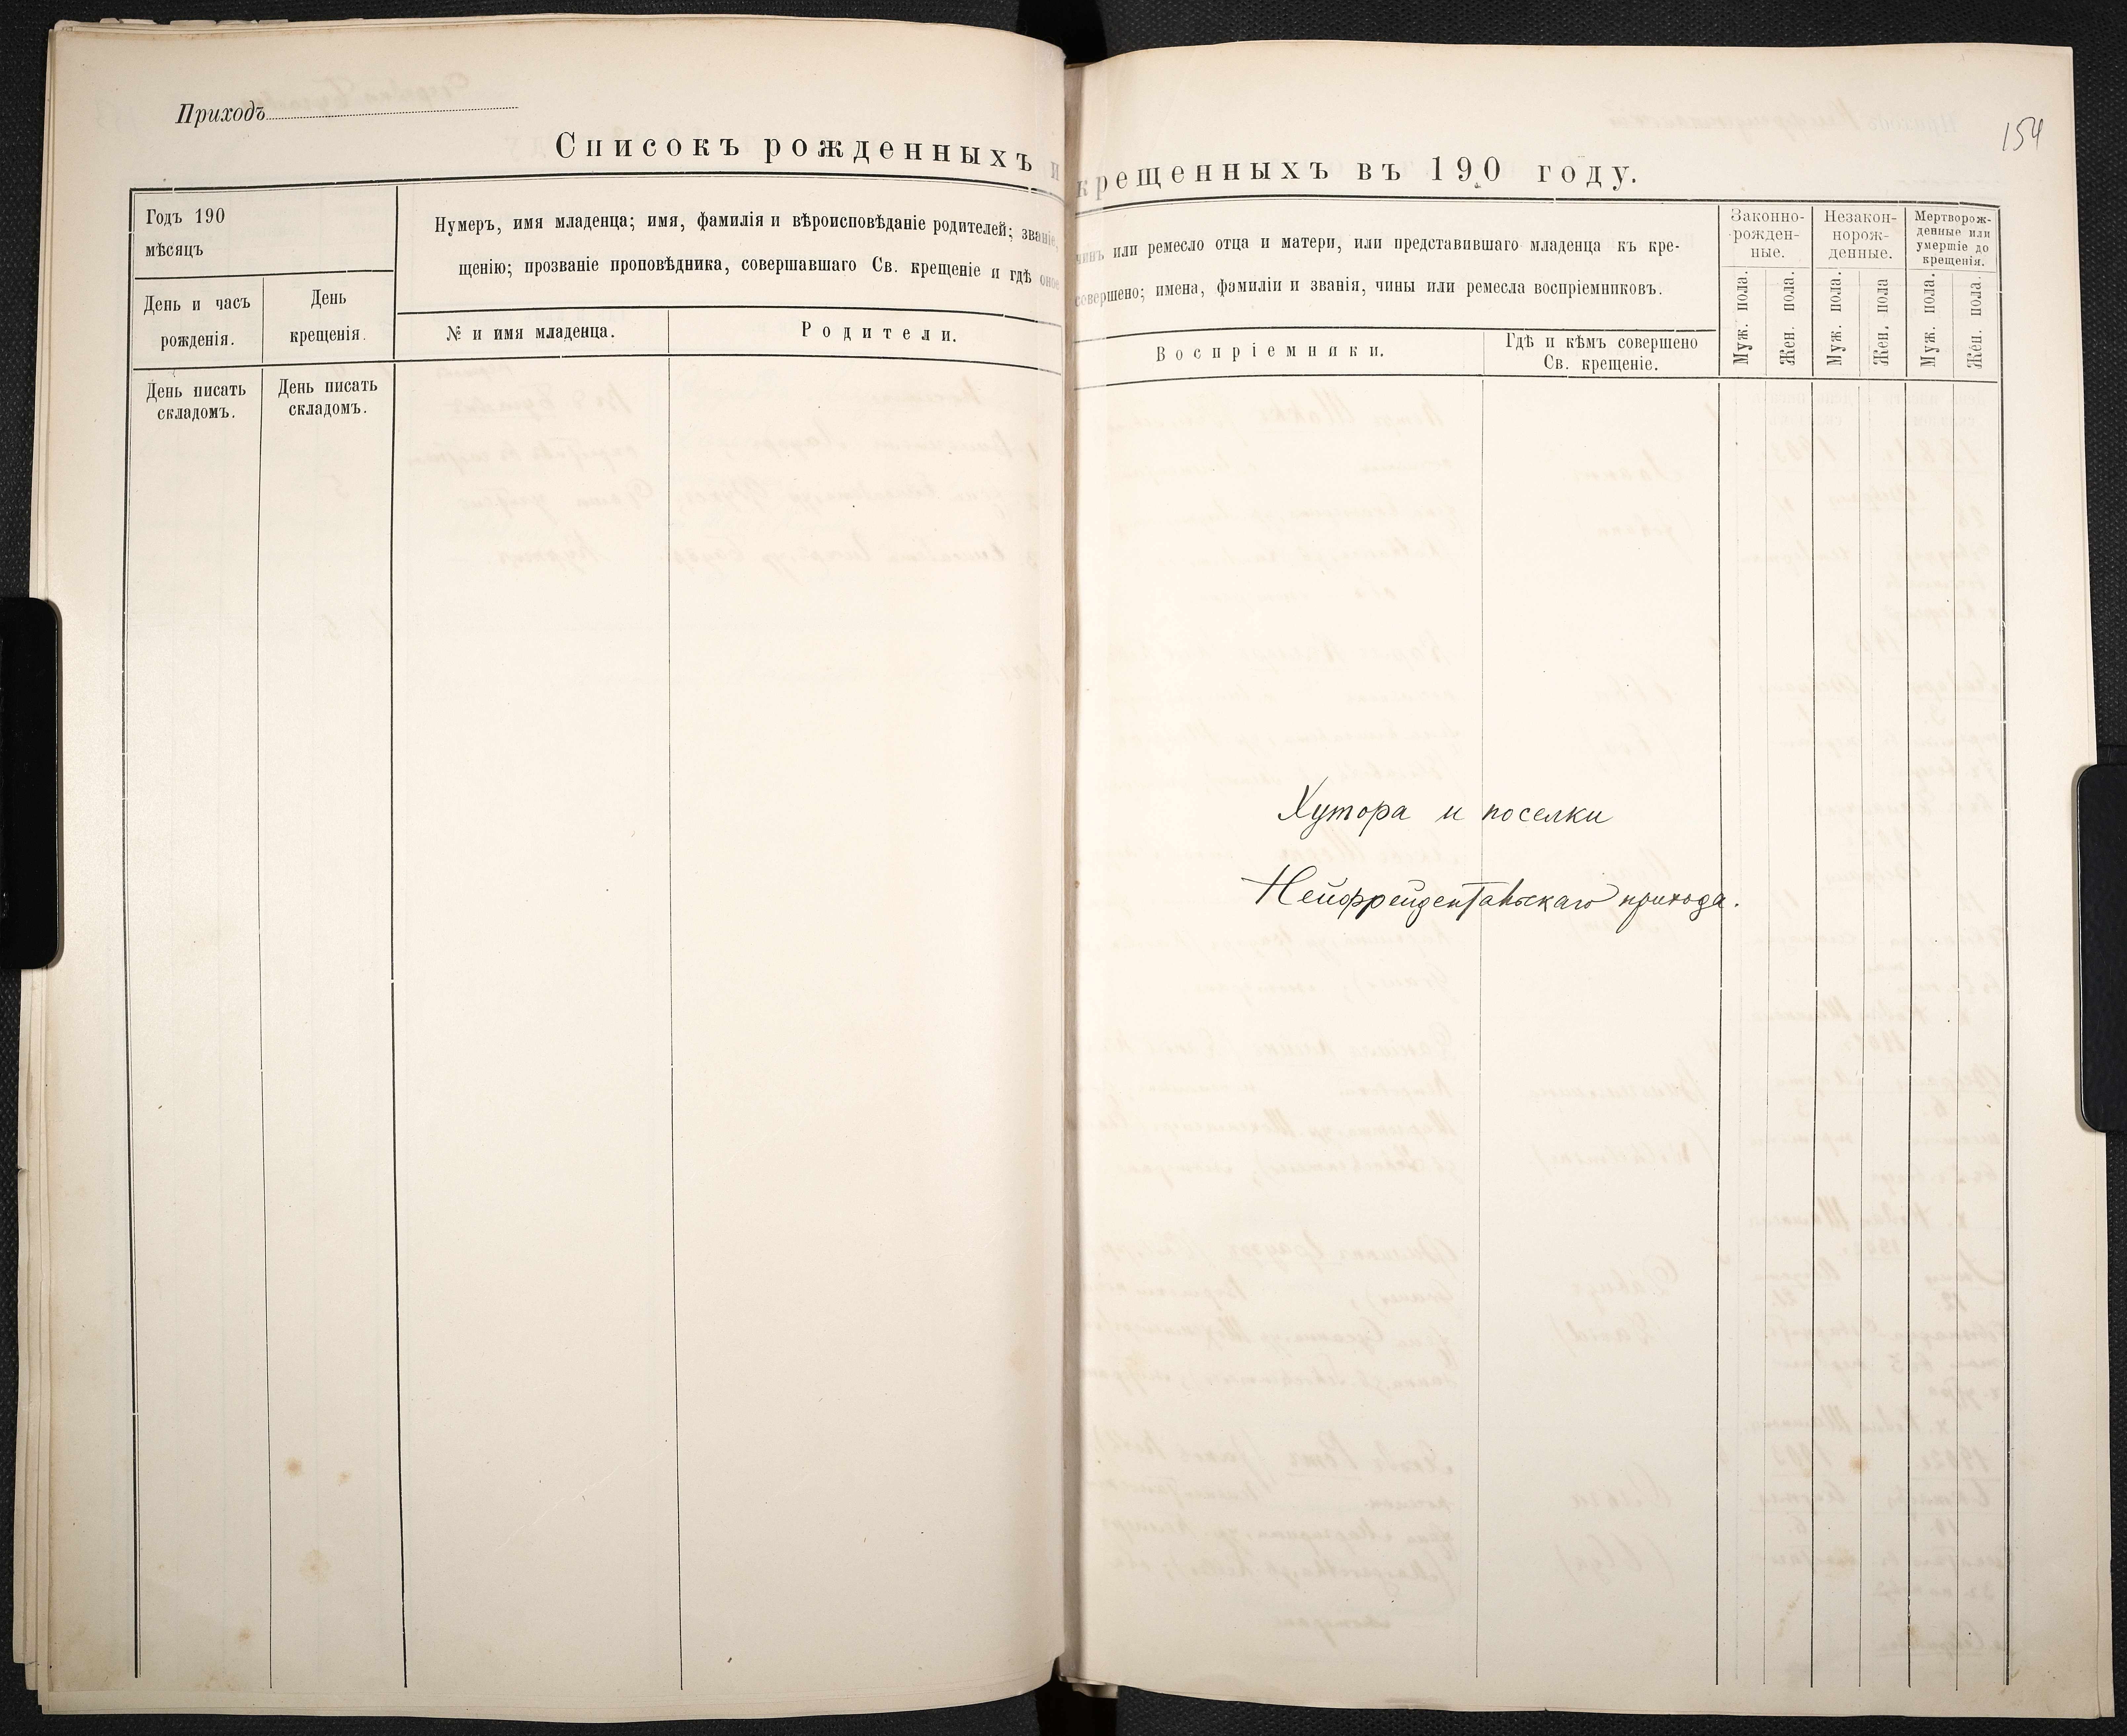 Приходъ
154
Списокъ рожденныхъ и крещенныхъ въ 190 году.
Годъ 190
мѣсяцъ
День и часъ
рожденія.
День
крещенія.
Нумеръ, имя младенца; имя, фамилія и вѣроисповѣданіе родителей; званіе, чинъ или ремесло отца и матери, или представившаго младенца къ кре-
щенію; прозваніе проповѣдника, совершавшаго Св. крещеніе и гдѣ оное совершено; имена, фамиліи и званія, чины или ремесла воспріемниковъ.
№ и имя младенца.
Родители.
Воспріемники.
Гдѣ и кѣмъ совершено
Св. крещеніе.
Законно-
рожден-
ные.
Незакон-
норож-
денные.
Мертворож-
денные или
умершіе до
крещенія.
Муж. пола.
Жен. пола.
Муж. пола.
Жен. пола
Муж. пола.
Жен. пола.
День писать
складомъ.
День писать
складомъ.
Хутора и поселки
Нейфрейдентальскаго прихода.